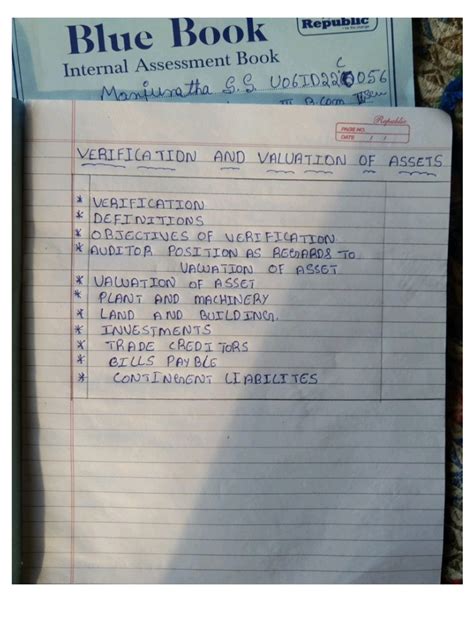 Blue Book
Republic
Internal Assessment Book
Manjunatha S.S. U06ID22C0056
III B.com
Republic
PAGE NO.
DATE / /
VERIFICATION AND VALUATION OF ASSETS
* VERIFICATION
* DEFINITIONS
* OBJECTIVES OF VERIFICATION
* AUDITOR POSITION AS REGARDS TO
VALUATION OF ASSET
* VALUATION OF ASSET
* PLANT AND MACHINERY
* LAND AND BUILDING.
* INVESTMENTS
* TRADE CREDITORS
* BILLS PAYBLE
* CONTINGENT LIABILITES